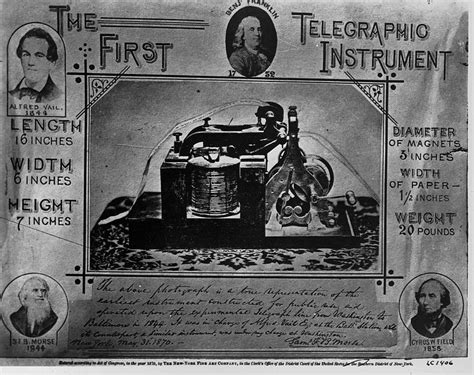 THE FIRST
BENJ. FRANKLIN
1752
TELEGRAPHIC
INSTRUMENT
ALFRED VAIL.
1844
LENGTH
16 INCHES
WIDTH
6 INCHES
HEIGHT
7 INCHES
DIAMETER
OF MAGNETS
3 INCHES
WIDTH
OF PAPER-
1½ INCHES
WEIGHT
20 POUNDS
The above photograph is a true representation of the
earliest instrument constructed for public use and
operated upon the experimental Telegraph line from Washington to
Baltimore in 1844. It was in charge of Alfred Vail Esq. at the
counterpart a similar instrument was under my charge at Washington.
New York, May 31. 1870.- Saml. F. B. Morse.
S.F.B. MORSE
1844
CYRUS W. FIELD
1858
Entered according to Act of Congress, in the year 1872, by THE NEW YORK FINE ART COMPANY, in the Clerk's Office of the District Court of the United States for the Southern District of New York.
LC1406